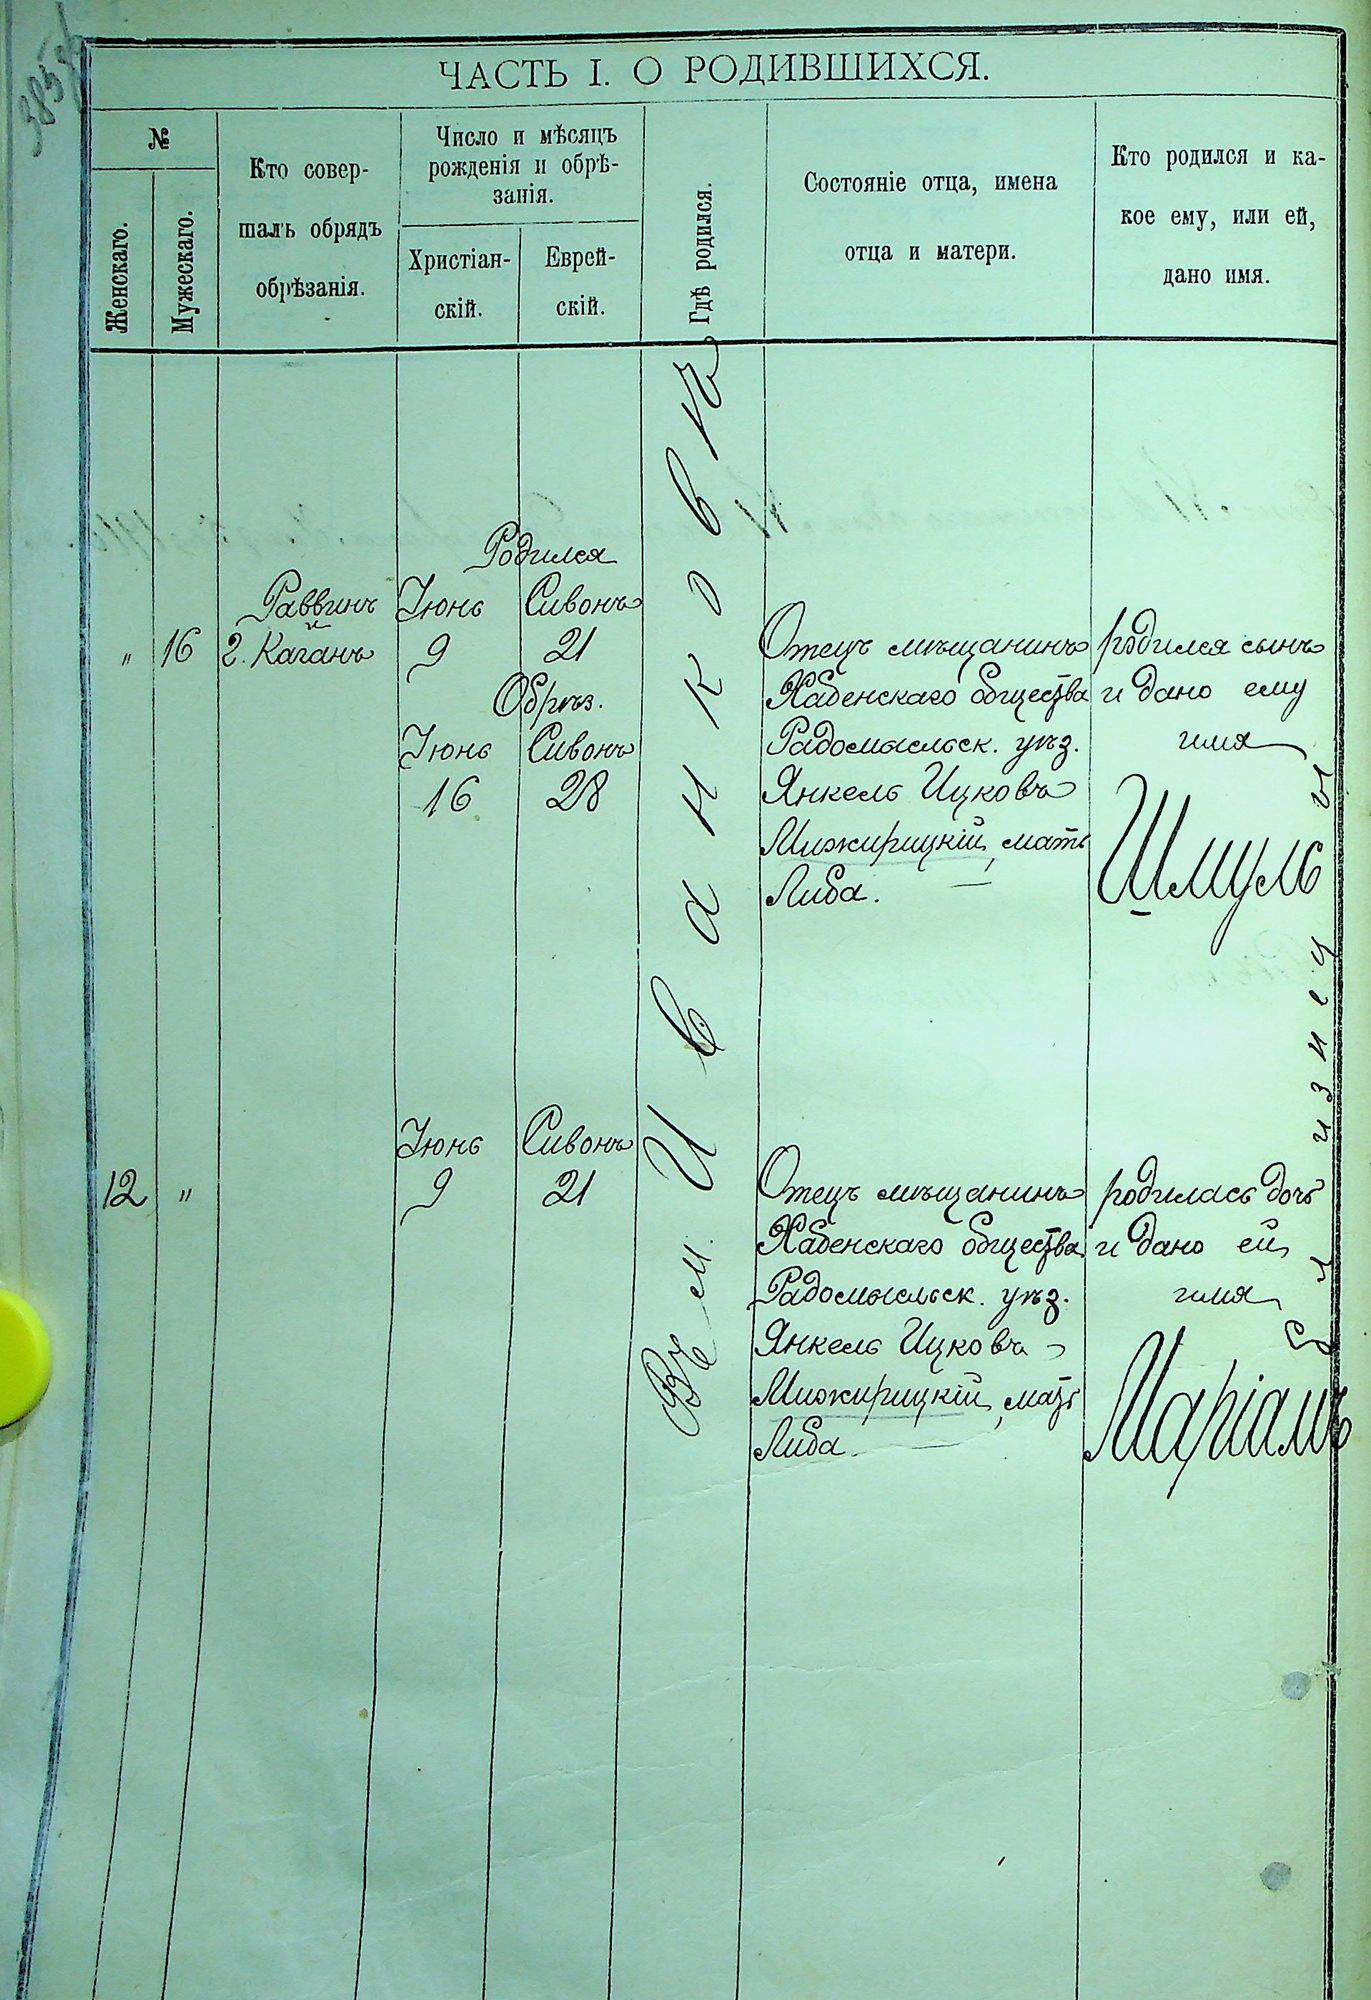 ЧАСТЬ I. О РОДИВШИХСЯ.
№
Женскаго.
Мужескаго.
Кто совер-
шалъ обрядъ
обрѣзанія.
Число и мѣсяцъ
рожденія и обрѣ-
занія.
Христіан-
скій.
Еврей-
скій.
Гдѣ родился.
Состояніе отца, имена
отца и матери.
Кто родился и ка-
кое ему, или ей,
дано имя.
Въ м. Иванковъ
"
16
Раввинъ
и
2. Каганъ
Родился
Іюнь Сивонъ
9 21
Обрѣз.
Іюнь Сивонъ
16 28
Отецъ мѣщанинъ
Хабенскаго общества
Радомысльск. уѣз.
Янкель Ицковъ
Мижирицкій, мать
Либа.
родился сынъ
и дано ему
имя
Шмуль
12
"
Іюнь Сивонъ
9 21
Отецъ мѣщанинъ
Хабенскаго общества
Радомысльск. уѣз.
Янкель Ицковъ
Мижирицкій, мать
Либа.
родилась дочь
и дано ей
имя
Маріамъ
Близнецы